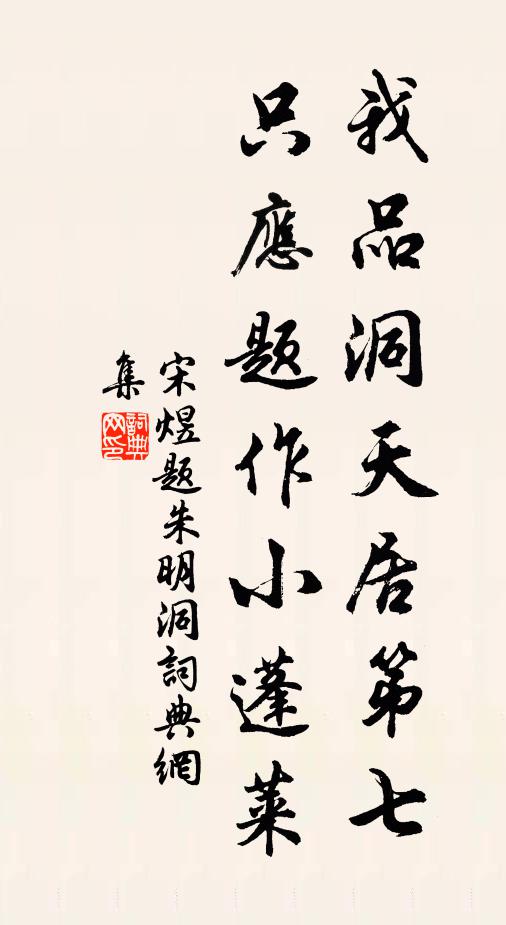 我品洞天居第七
只應題作小蓬萊
宋煜題朱明洞詞典網
集
詞典网印